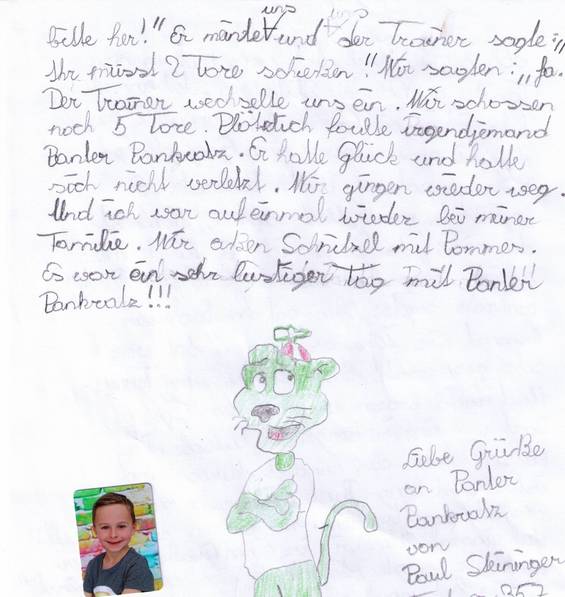 bitte her!" Er mänte uns und der Trainer sagte: „
Ihr müsst 2 Tore schießen!" Wir sagten: „Ja.
Der Trainer wechselte uns ein. Wir schossen
noch 5 Tore. Plötzlich foulte irgendjemand
Panter Pankratz. Er hatte Glück und hatte
sich nicht verletzt. Wir gingen wieder weg.
Und ich war auf einmal wieder bei meiner
Familie. Wir aßen Schnitzel mit Pommes.
Es war ein sehr lustiger Tag mit Panter
Pankratz!!!
Liebe Grüße
an Panter
Pankratz
von
Paul Steininger